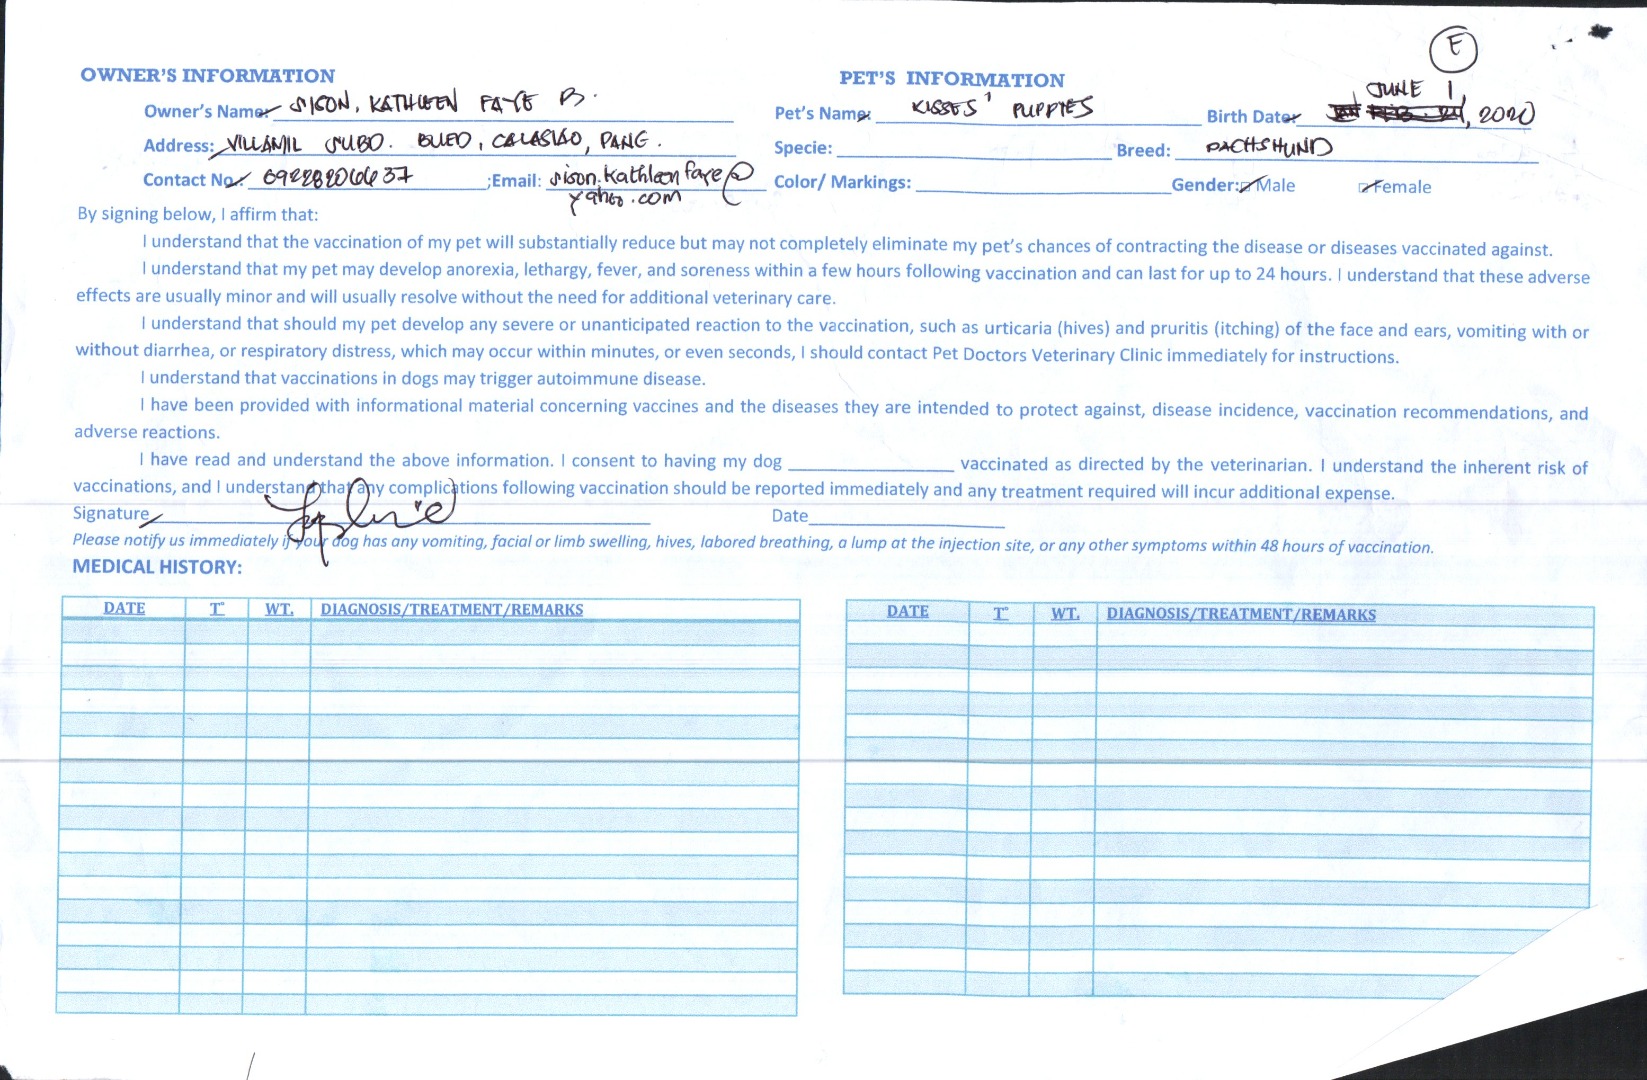 E
OWNER'S INFORMATION
PET'S INFORMATION
Owner's Name SISON, KATHLEEN FAYE B.
Pet's Name KISSES' PUPPIES
Birth Date JUNE 1, 2020
Address: VILLAMIL SUBD. BUED, CALASIAO, PANG.
Specie: Breed: DACHSHUND
Contact No. ;Email: sison.kathleenfaye@
yahoo.com
Color/ Markings: Gender: Male Female
By signing below, I affirm that:
I understand that the vaccination of my pet will substantially reduce but may not completely eliminate my pet's chances of contracting the disease or diseases vaccinated against.
I understand that my pet may develop anorexia, lethargy, fever, and soreness within a few hours following vaccination and can last for up to 24 hours. I understand that these adverse
effects are usually minor and will usually resolve without the need for additional veterinary care.
I understand that should my pet develop any severe or unanticipated reaction to the vaccination, such as urticaria (hives) and pruritis (itching) of the face and ears, vomiting with or
without diarrhea, or respiratory distress, which may occur within minutes, or even seconds, I should contact Pet Doctors Veterinary Clinic immediately for instructions.
I understand that vaccinations in dogs may trigger autoimmune disease.
I have been provided with informational material concerning vaccines and the diseases they are intended to protect against, disease incidence, vaccination recommendations, and
adverse reactions.
I have read and understand the above information. I consent to having my dog vaccinated as directed by the veterinarian. I understand the inherent risk of
vaccinations, and I understand that any complications following vaccination should be reported immediately and any treatment required will incur additional expense.
Signature Date
Please notify us immediately if your dog has any vomiting, facial or limb swelling, hives, labored breathing, a lump at the injection site, or any other symptoms within 48 hours of vaccination.
MEDICAL HISTORY:
DATE T° WT. DIAGNOSIS/TREATMENT/REMARKS
DATE T° WT. DIAGNOSIS/TREATMENT/REMARKS